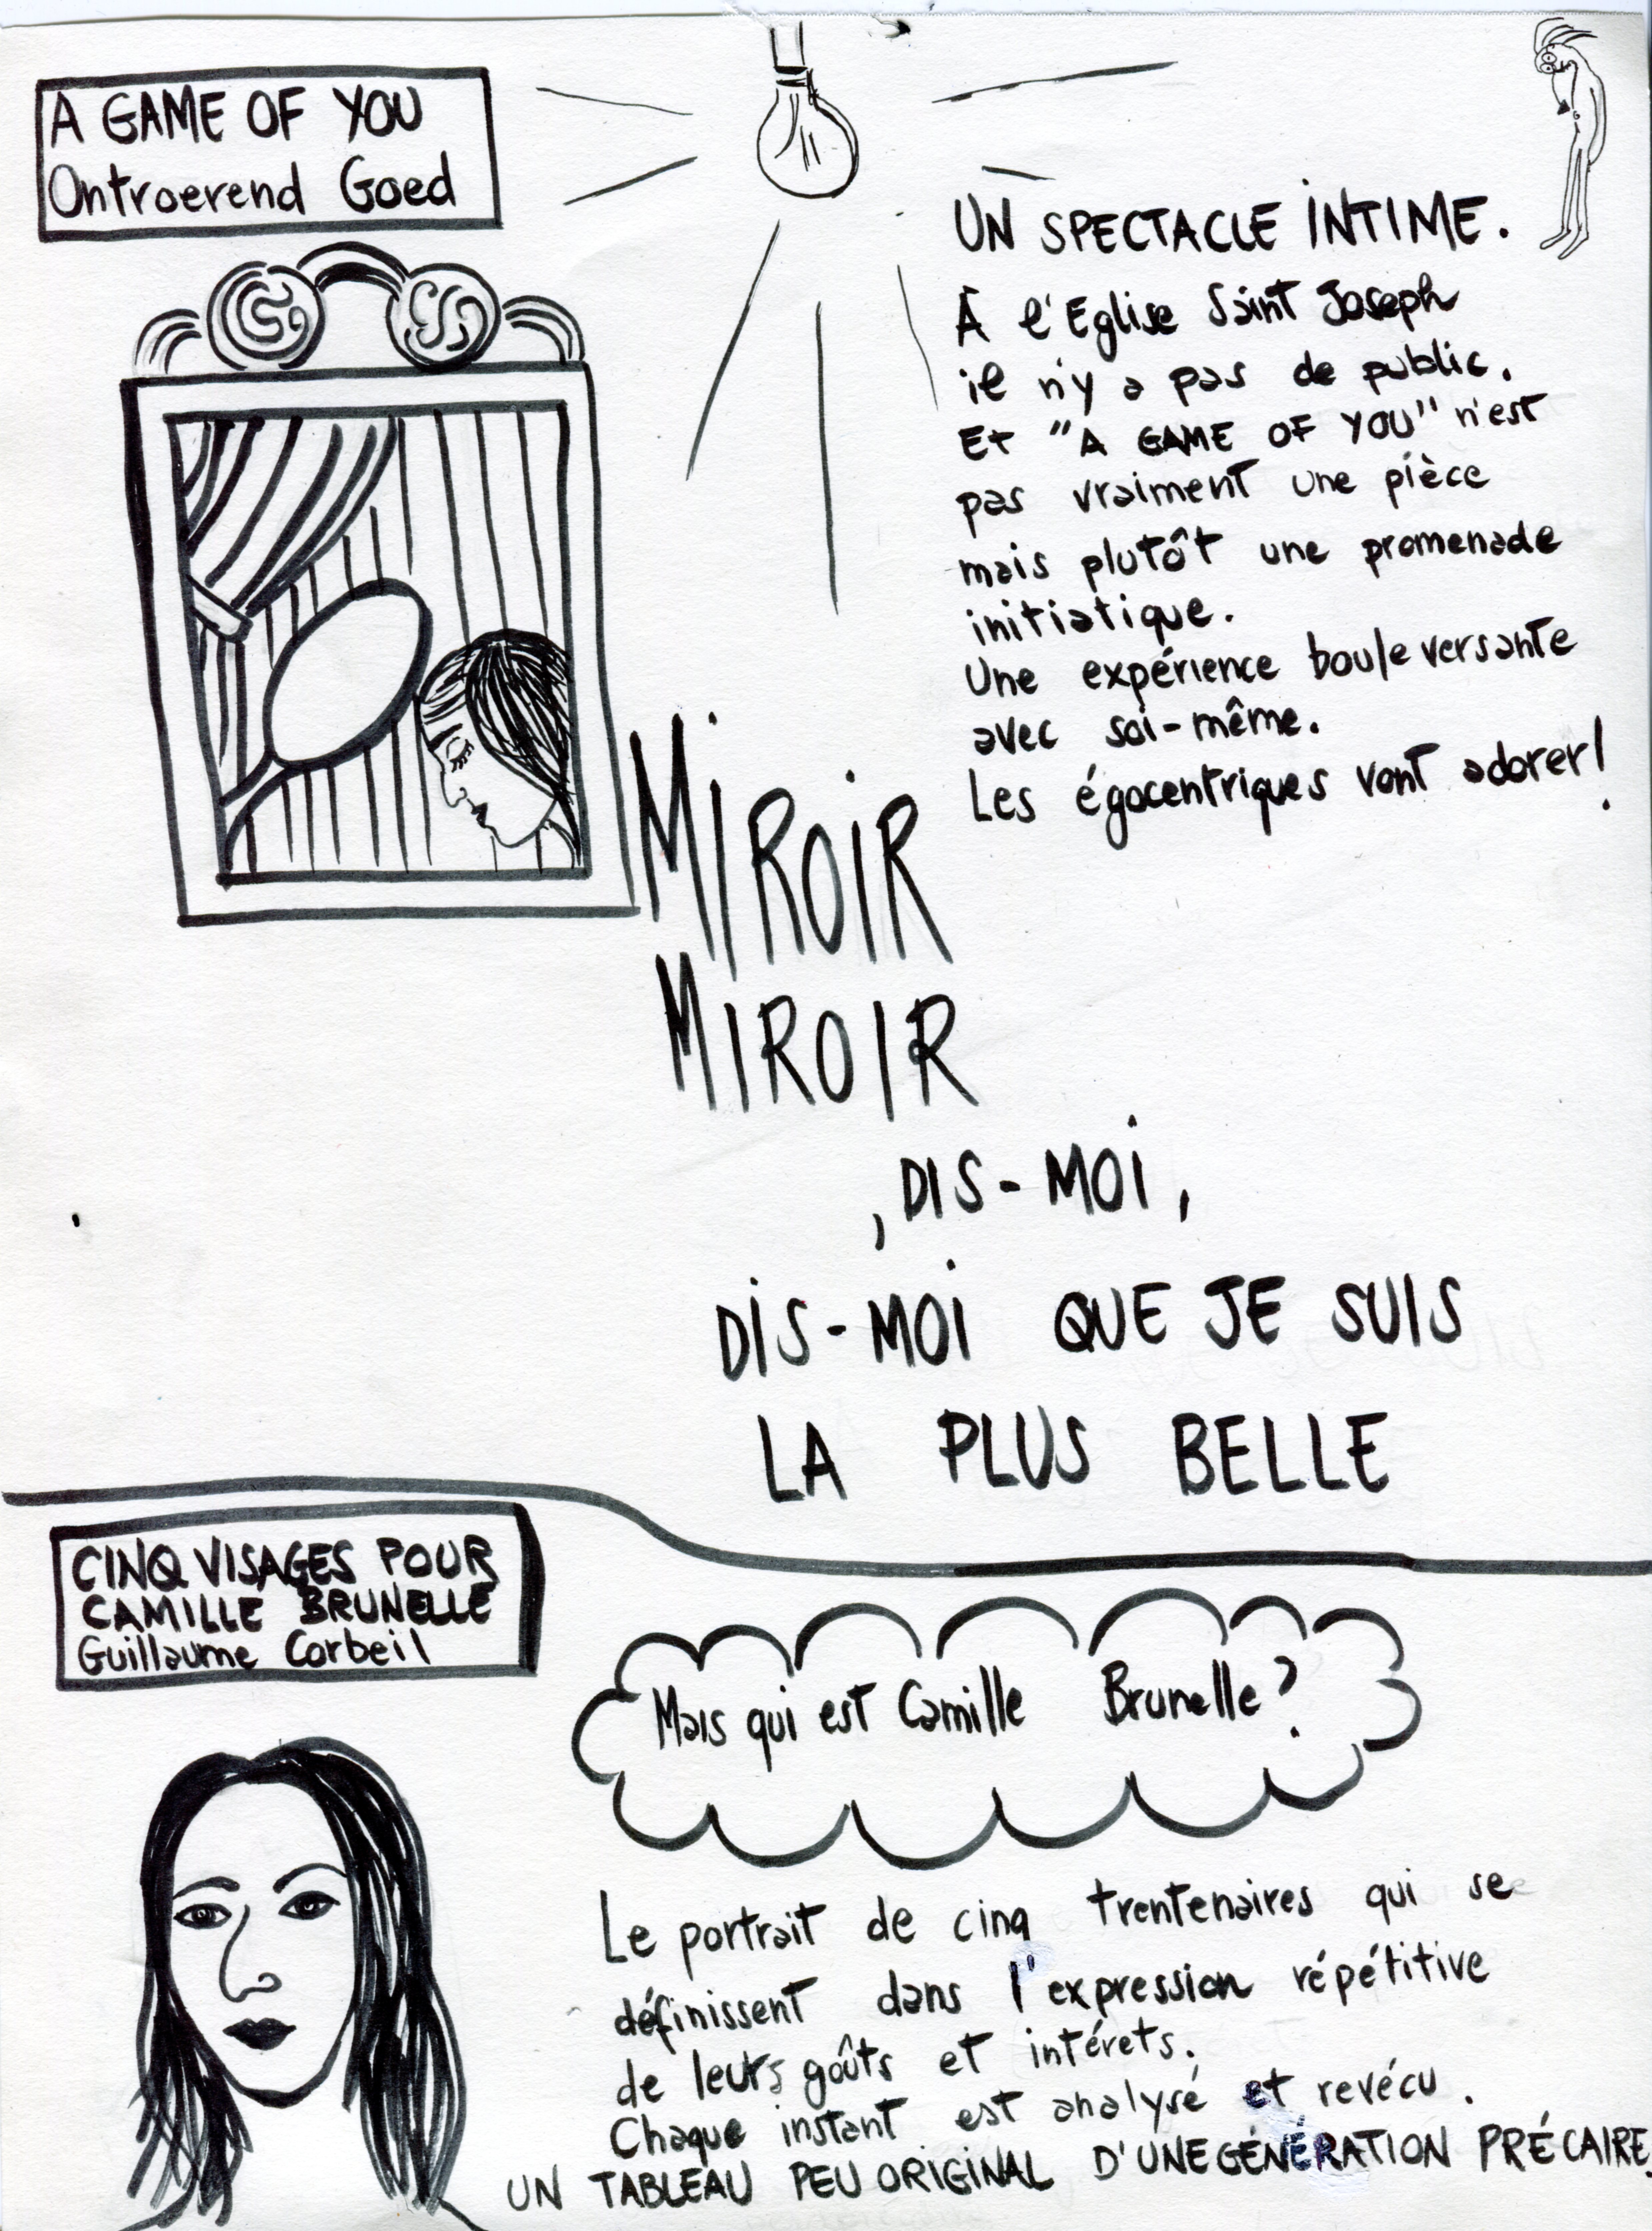 A GAME OF YOU
Ontroerend Goed
UN SPECTACLE INTIME.
À l'Eglise Saint Joseph
il n'y a pas de public.
Et "A GAME OF YOU" n'est
pas vraiment une pièce
mais plutôt une promenade
initiatique.
Une expérience bouleversante
avec soi-même.
Les égocentriques vont adorer!
MIROIR
MIROIR
, DIS-MOI,
DIS-MOI QUE JE SUIS
LA PLUS BELLE
CINQ VISAGES POUR
CAMILLE BRUNELLE
Guillaume Corbeil
Mais qui est Camille Brunelle?
Le portrait de cinq trentenaires qui se
définissent dans l'expression répétitive
de leurs goûts et intérets.
Chaque instant est analysé et revécu.
UN TABLEAU PEU ORIGINAL D'UNE GÉNÉRATION PRÉCAIRE.